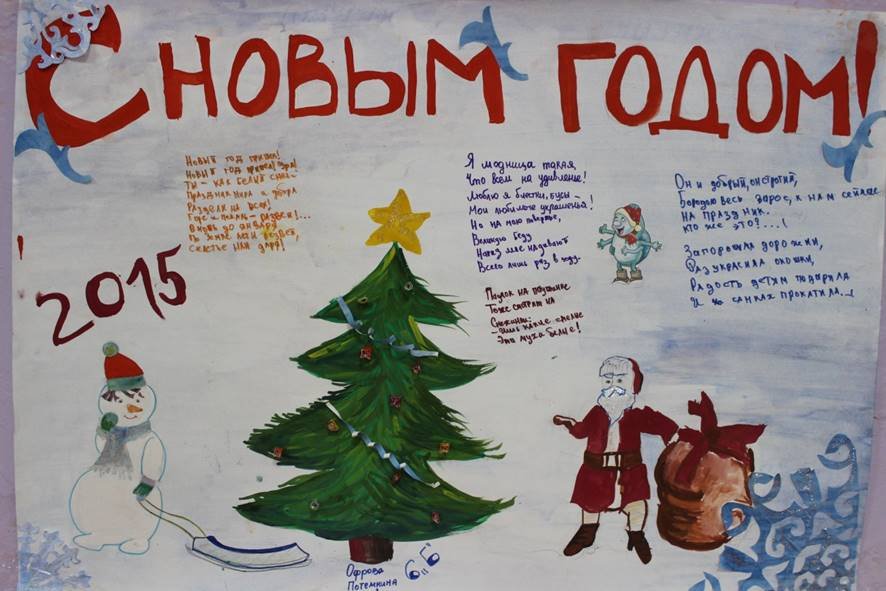 С НОВЫМ ГОДОМ!
Новый год пришёл!
Новый год пришёл! Ура!
Ты - как белый снег -
Праздник мира и добра
Раздели на всех!
Вновь до января
Счастье нам даря!
Я модница такая,
Что всем на удивление!
Люблю я блёстки, бусы -
Мои любимые украшенья!
Но на мою, поверьте,
Великую беду
Наряд мне надевают
Всего лишь раз в году.
Паучок на паутинке
Тоже смотрит на
Снежинки:
смелые
Это мухи белые!
Он и добрый, он и строгий,
Бородою весь зарос, к нам сейчас
на праздник.
кто же это?...!
Запорошила дорожки,
Разукрасила окошки,
Радость детям подарила
И на санках прокатила...!
2015
Офрова
Потемкина
6 "Б"